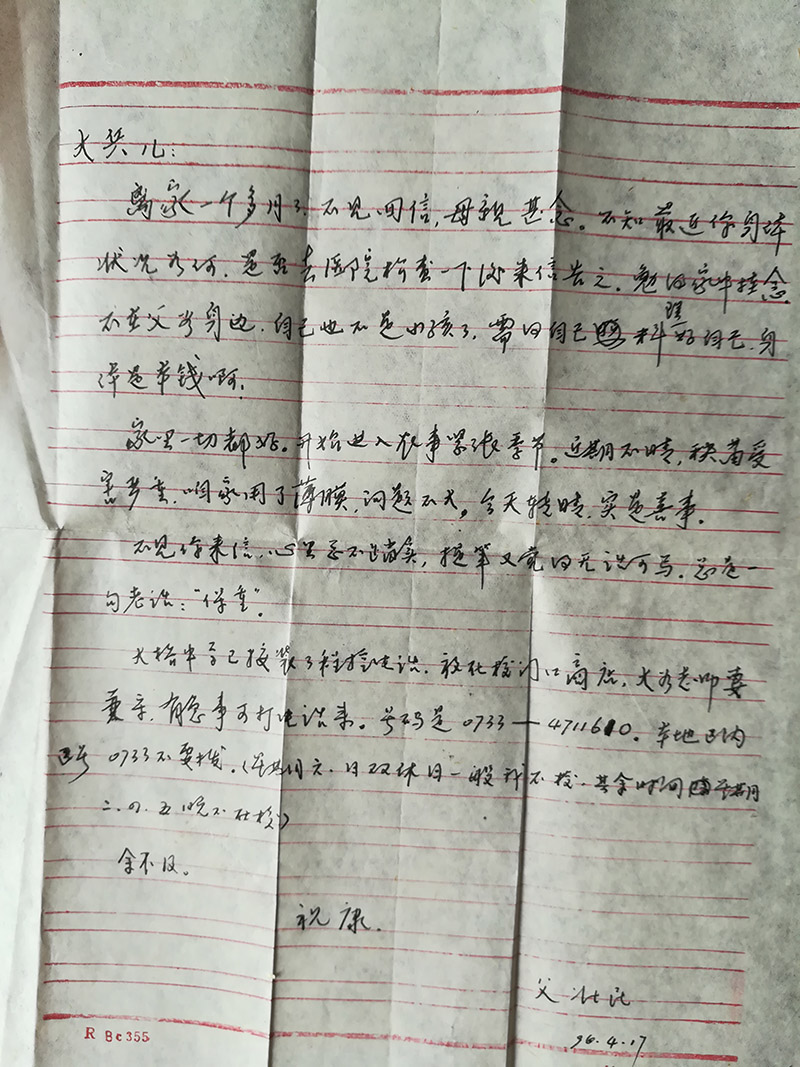 大癸儿:
离家一个多月了,不见回信,母亲甚念。不知最近你身体
状况如何,是否去医院检查一下,盼来信告之,免得家中挂念
不在父母身边,自己也不是小孩了,需得自己照料理好自己,身
体是本钱啊!
家里一切都好。开始进入农事紧张季节。近期不晴,秧苗受
害严重,咱家用了薄膜,问题不大。今天转晴,实是喜事。
不见你来信,心里总不踏实,提笔又觉得无话可写。总是一
句老话:“保重”。
大 中 已接装了程控电话,放在校门口商店,
有急事可打电话来。号码是0733—4711610。本地区内
区号0733不要拨。(星期六、日双休日一般我不在校,其余时间 星期
二、四、五晚不在校)
余不及。
祝康。
父
96.4.17
R Bc355